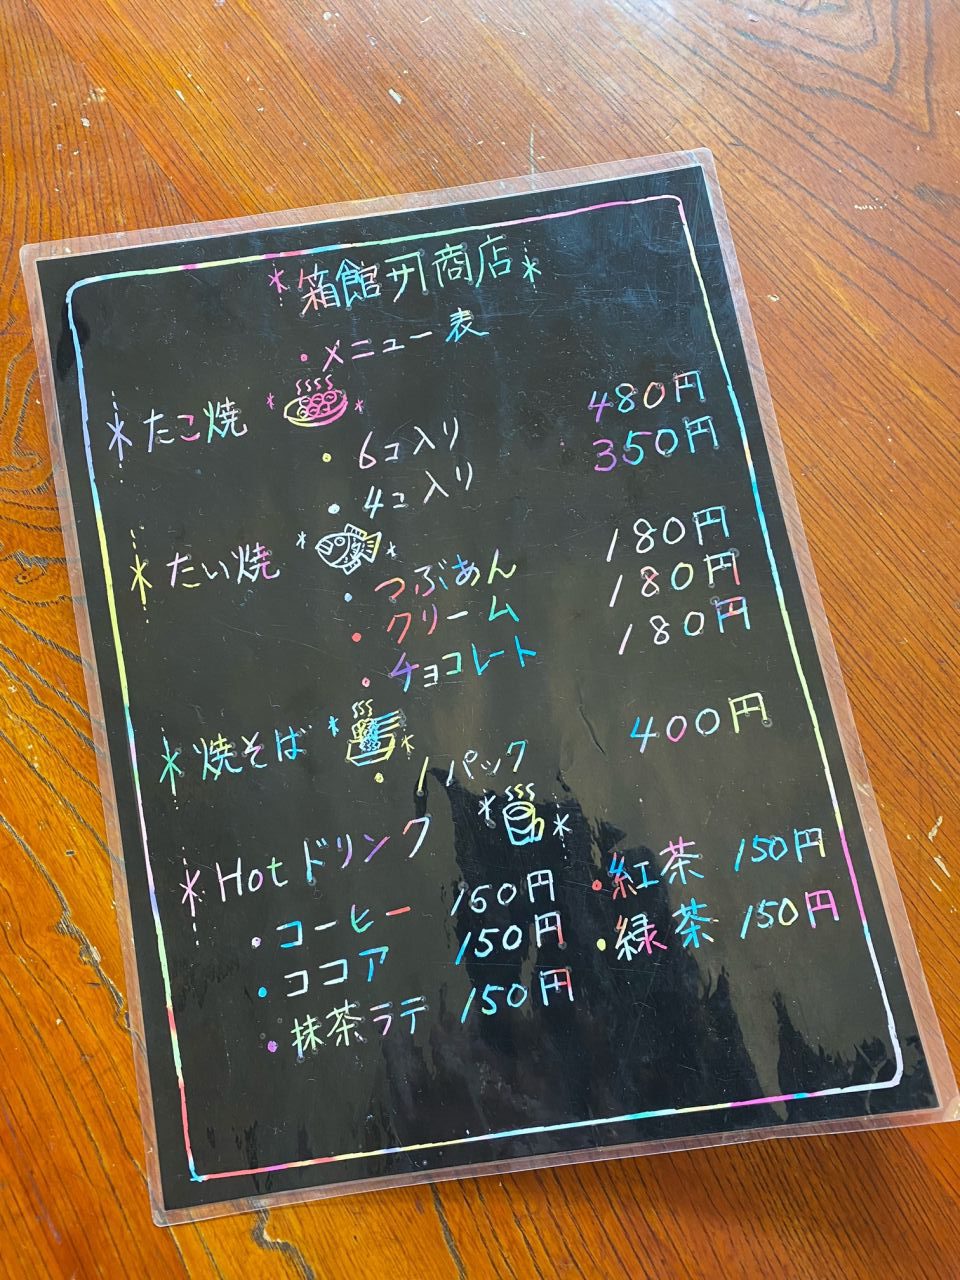 *箱館 商店*
・メニュー表
*たこ焼
・6コ入り 480円
・4コ入り 350円
*たい焼
・つぶあん 180円
・クリーム 180円
・チョコレート 180円
*焼そば
・1パック 400円
*Hotドリンク
・コーヒー 160円 ・紅茶 150円
・ココア 150円 ・緑茶 150円
・抹茶ラテ 150円